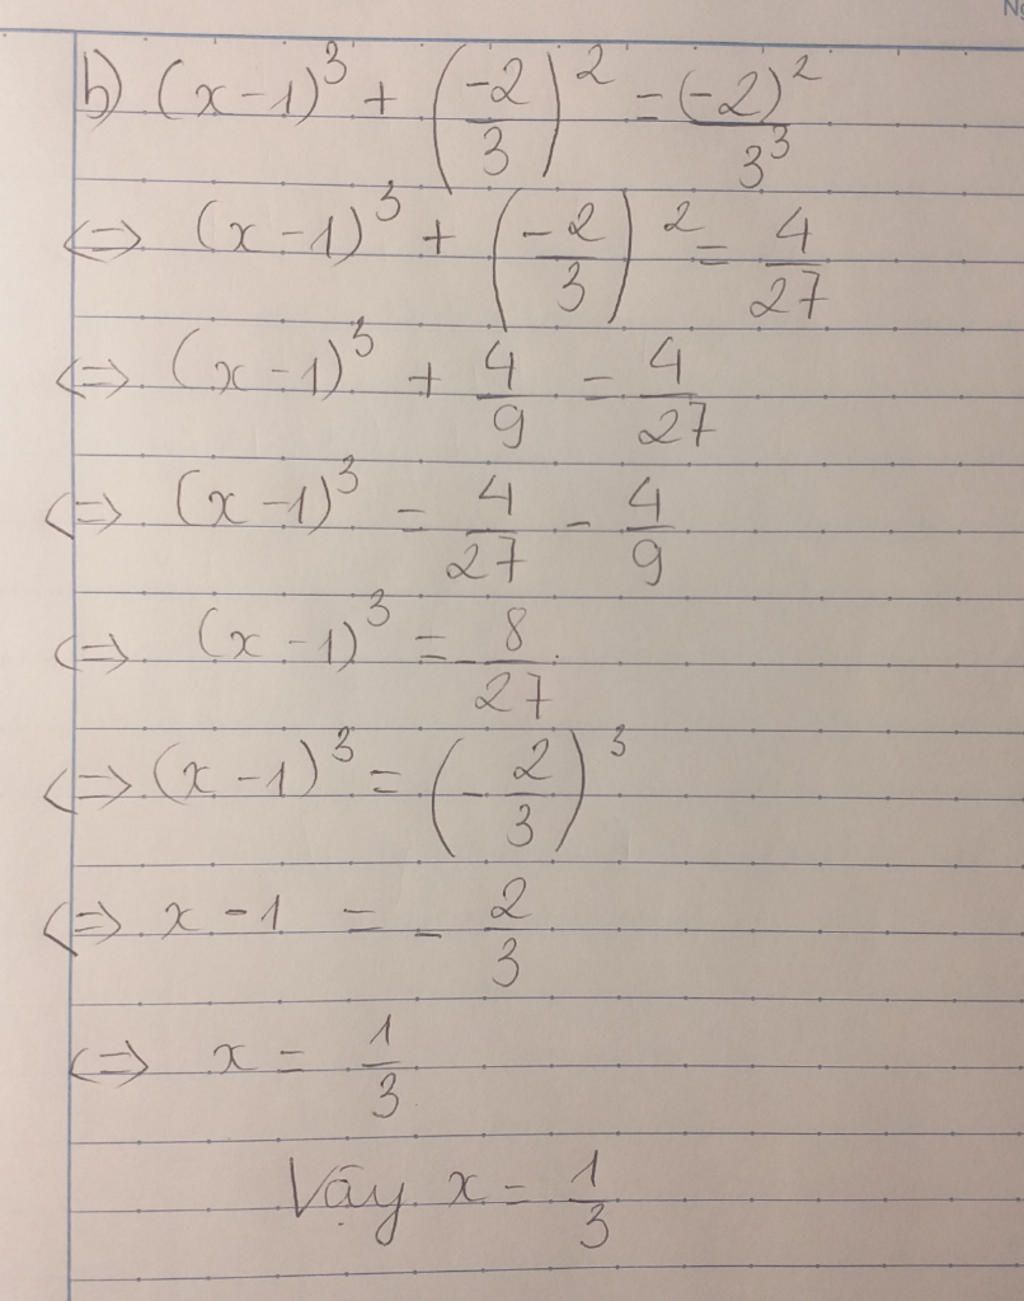 b) (x-1)³ + (-2/3)² = (-2)²/3³
⇔ (x-1)³ + (-2/3)² = 4/27
⇔ (x-1)³ + 4/9 = 4/27
⇔ (x-1)³ = 4/27 - 4/9
⇔ (x-1)³ = -8/27
⇔ (x-1)³ = (-2/3)³
⇔ x-1 = -2/3
⇔ x = 1/3
Vậy x = 1/3